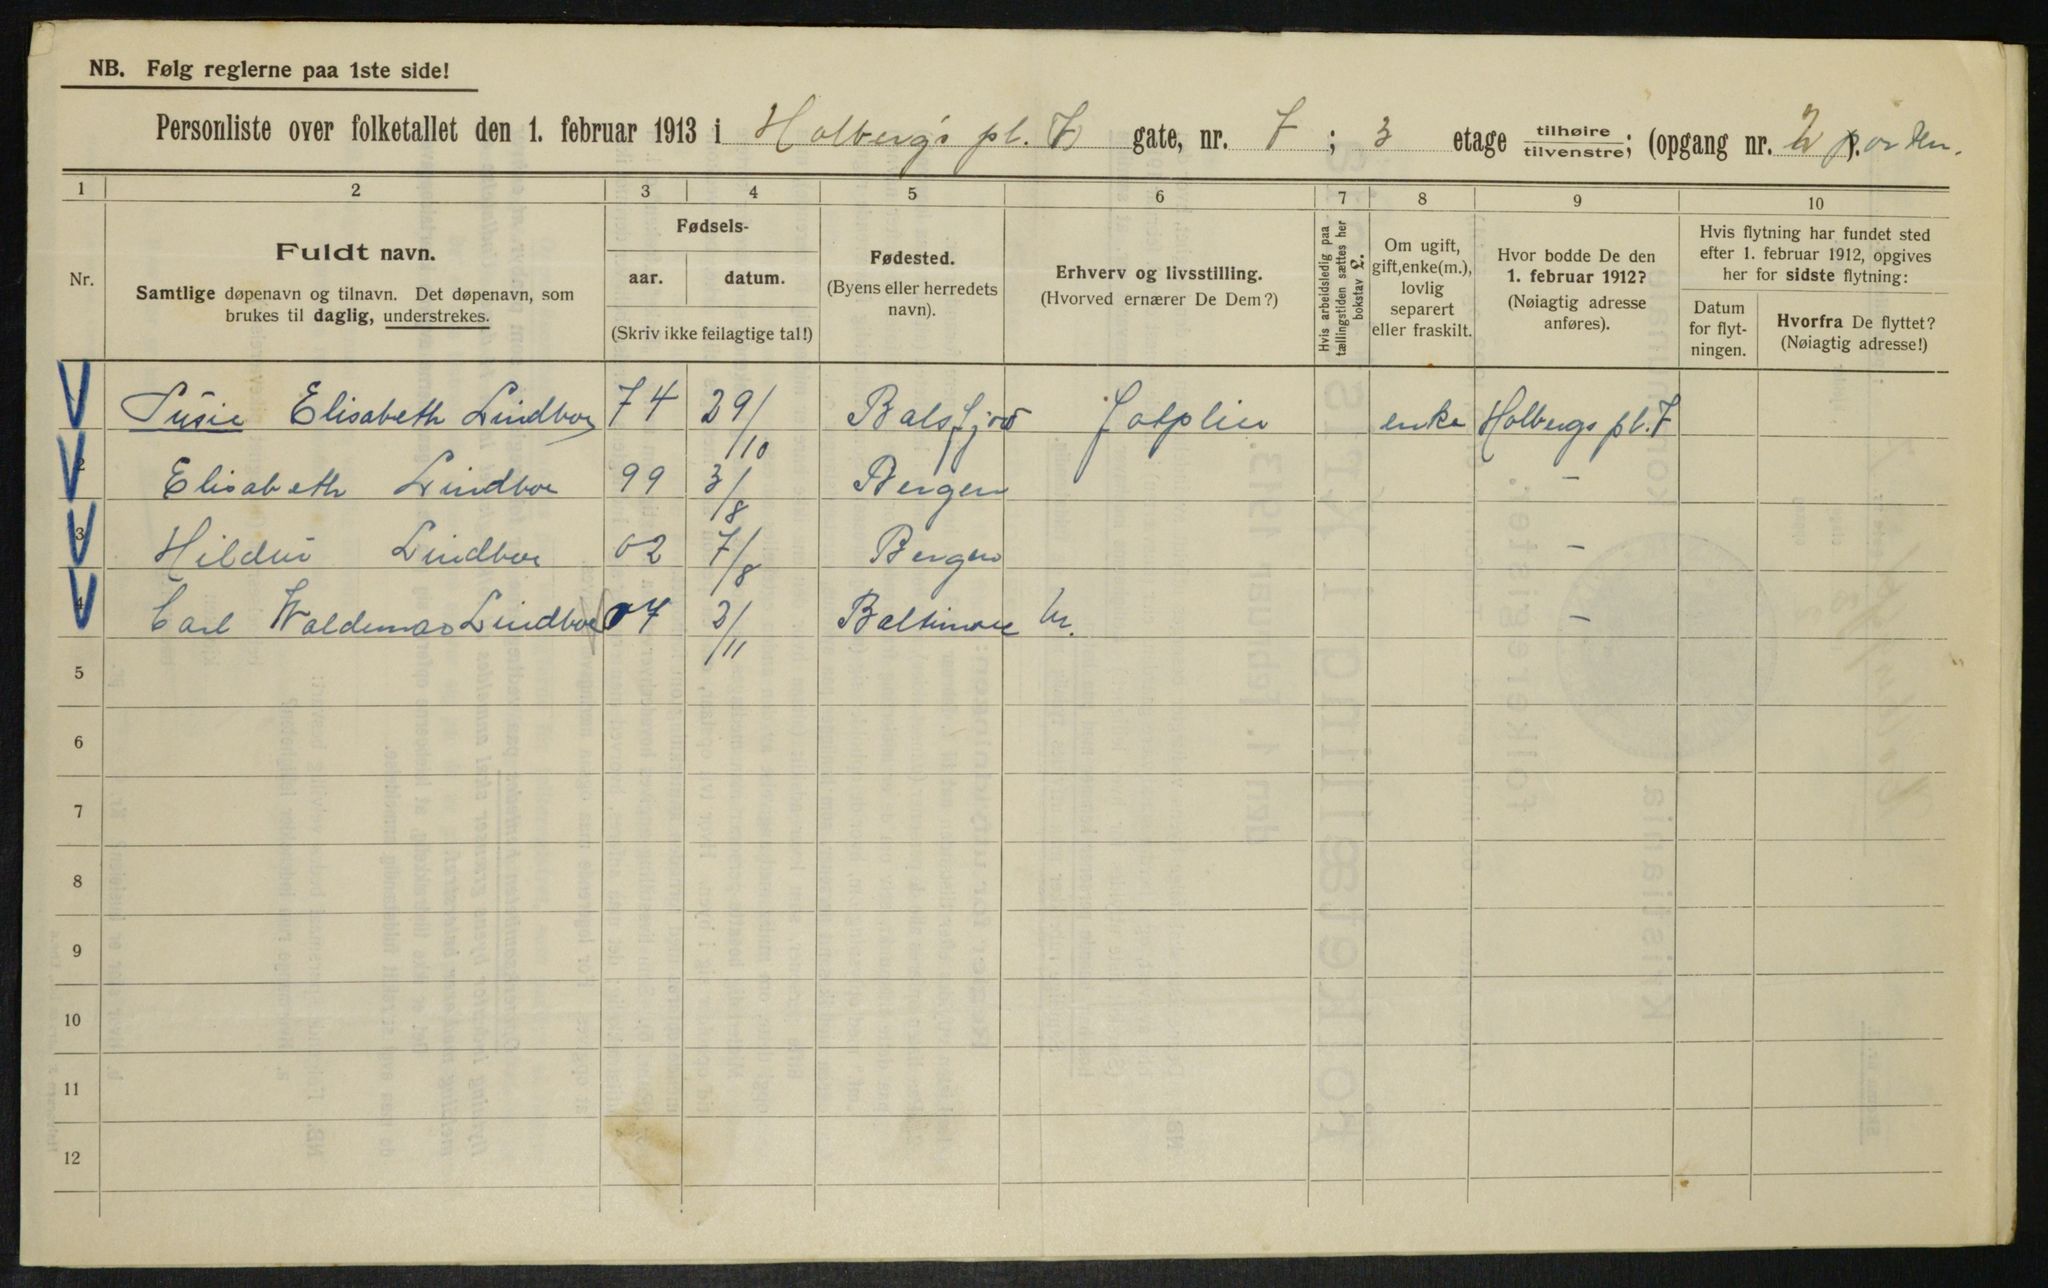 NB. Følg reglerne paa 1ste side!
Personliste over folketallet den 1. februar 1913 i Holbergs pl. 7 gate, nr. 7; 3 etage tilhøire/tilvenstre; (opgang nr. 2 porten.
1 2 3 4 5 6 7 8 9 10
Nr.
Fuldt navn.
Samtlige døpenavn og tilnavn. Det døpenavn, som
brukes til daglig, understrekes.
Fødsels-
aar. datum.
(Skriv ikke feilagtige tal!)
Fødested.
(Byens eller herredets
navn).
Erhverv og livsstilling.
(Hvorved ernærer De Dem?)
Hvis arbeidsledig paa
tællingstiden sættes her
bokstav L.
Om ugift,
gift, enke(m.),
lovlig
separert
eller fraskilt.
Hvor bodde De den
1. februar 1912?
(Nøiagtig adresse
anføres).
Hvis flytning har fundet sted
efter 1. februar 1912, opgives
her for sidste flytning:
Datum
for flyt-
ningen.
Hvorfra De flyttet?
(Nøiagtig adresse!)
Susie Elisabeth Lindboe 74 29/10 Balsfjord enke Holbergs pl. 7
2 Elisabeth Lindboe 99 3/8 Bergen -
3 Hildur Lindboe 02 7/8 Bergen -
4 Carl Waldemar Lindboe 07 2/11 Baltimore -
5
6
7
8
9
10
11
12